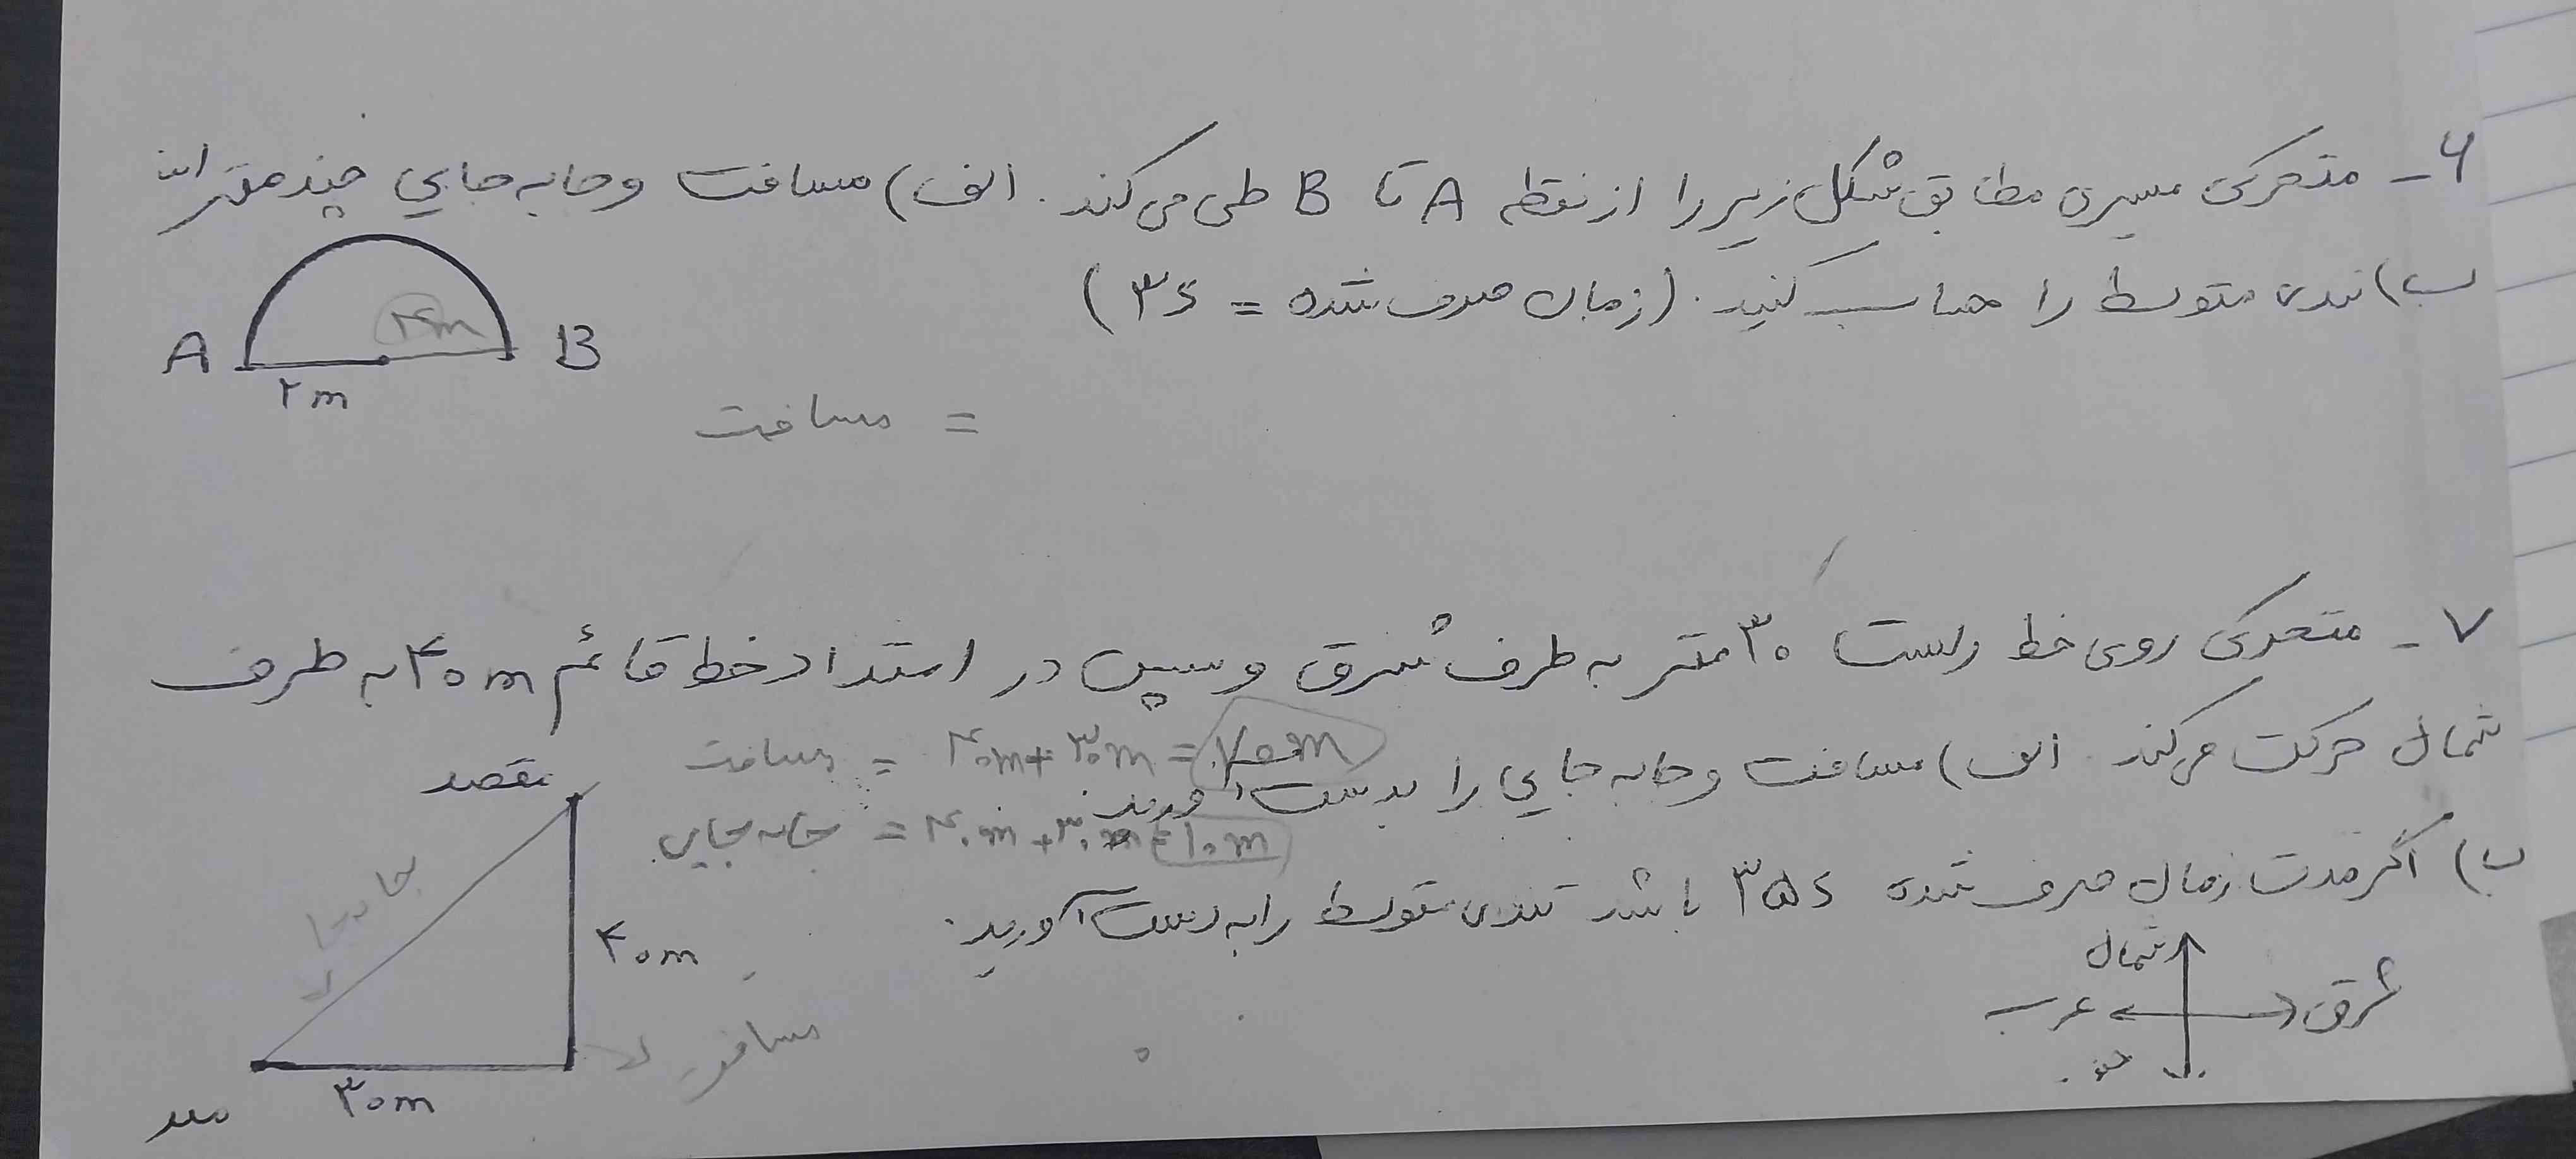 ۶- متحرکی مسیری مطابق شکل زیر را از نقطه A تا B طی می‌کند. الف) مسافت و جابه‌جایی چند متر است
ب) تندی متوسط را حساب کنید. (زمان صرف شده = ۳s)
A B
۲m
مسافت =
۷- متحرکی روی خط راست ۳۰ متر به طرف شرق و سپس در امتداد خط قائم ۴۰m به طرف
شمال حرکت می‌کند. الف) مسافت و جابه‌جایی را بدست آورید.
مسافت = ۴۰m + ۳۰m = ۷۰m
جابه‌جایی = ۴۰m + ۳۰m = ۱۰m
ب) اگر مدت زمان صرف شده ۳۵s باشد تندی متوسط را به دست آورید.
مقصد
۴۰m
۳۰m
مسافت
شمال
شرق
غرب